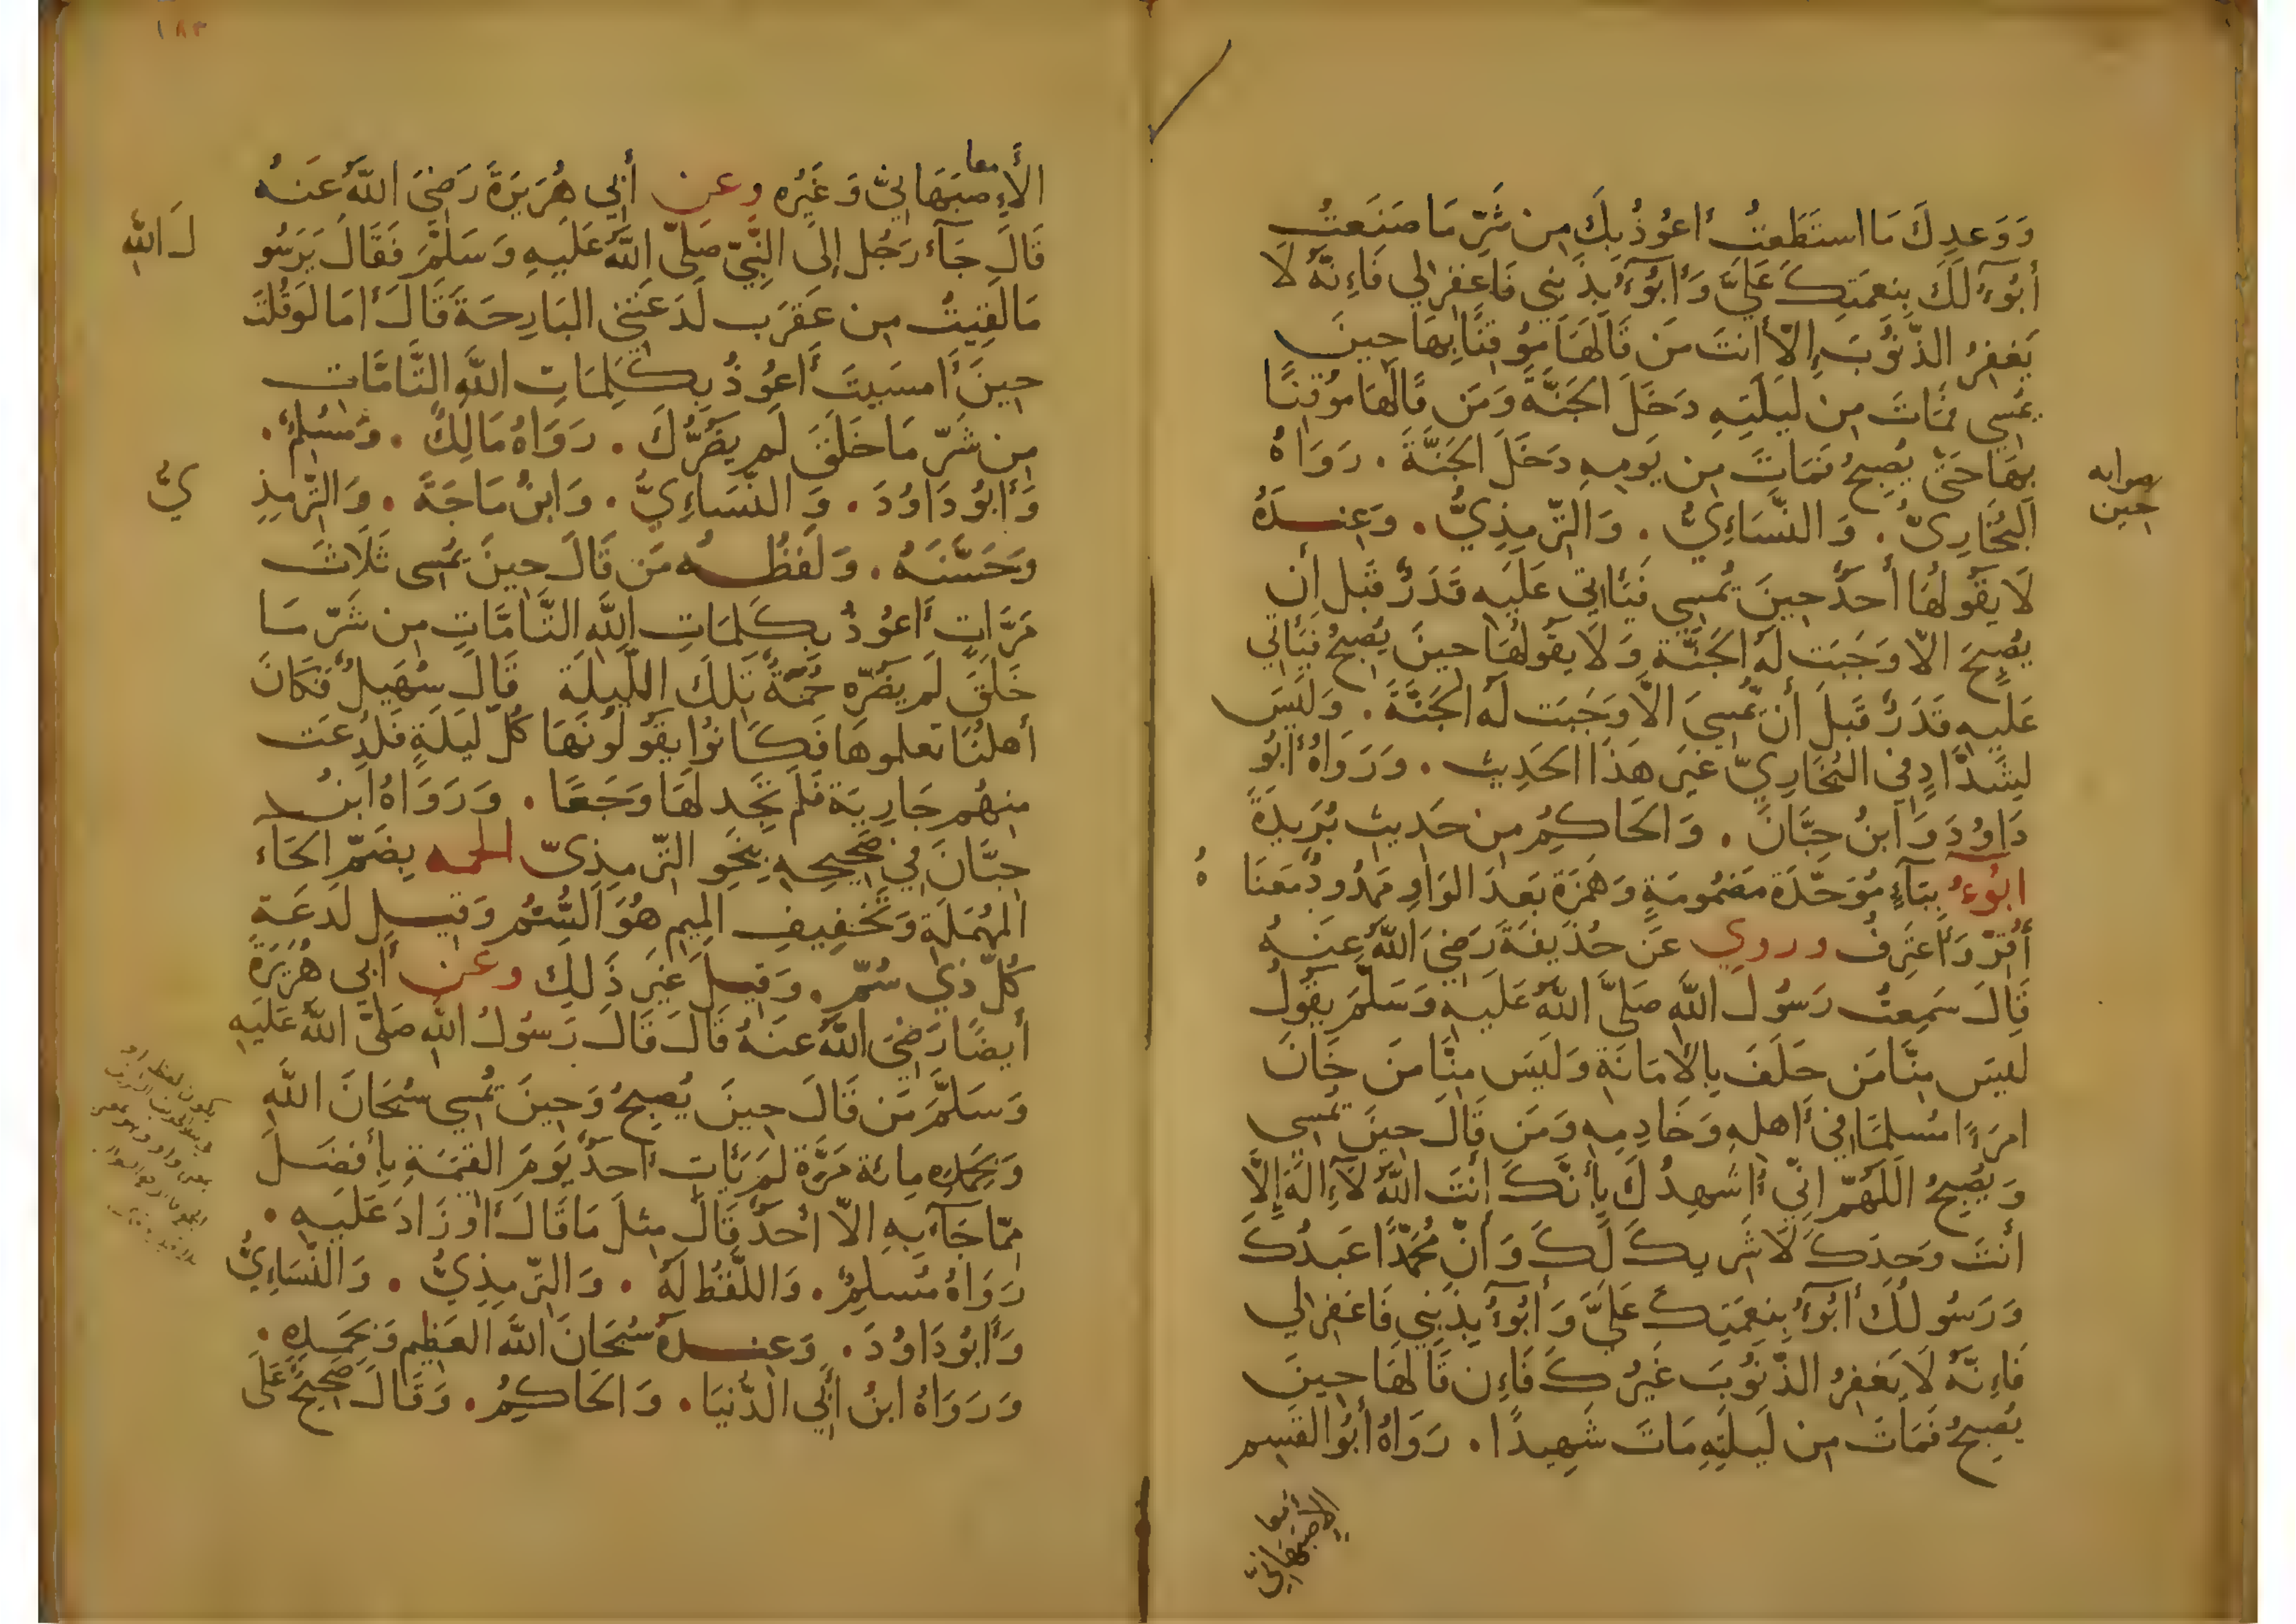 وَوَعدِكَ مَا استَطَعتُ أعُوْذُ بِكَ مِن شَرِّ مَا صَنَعتُ
أبُوْءُ لَكَ بِنِعمَتِكَ عَلَيَّ وَأبُوْءُ بِذَنبِي فَاغفِر لِي فَإِنَّهُ لَا
يَغفِرُ الذُّنُوْبَ إِلّا أنتَ مَن قَالَهَا مُوْقِنًا بِهَا حِينَ
يُمسِي فَمَاتَ مِن لَيلَتِهِ دَخَلَ الجَنَّةَ وَمَن قَالَهَا مُوْقِنًا
بِهَا حَتّى يُصبِحُ فَمَاتَ مِن يَومِهِ دَخَلَ الجَنَّةَ . رَوَاهُ
صوابه
حين
البُخَارِيُّ . وَالنَّسَاءِيُّ . وَالتِّرمِذِيُّ . وَعِندَهُ
لَا يَقُولُهَا أحَدٌ حِينَ يُمسِي فَيَأتِي عَلَيهِ قَدَرٌ قَبلَ أن
يُصبِحَ الّا وَجَبَت لَهُ الجَنَّة وَلَا يَقُولُهَا حِينَ يُصبِحُ فَيَأتِي
عَلَيهِ قَدَرٌ قَبلَ أن يُّمسِيَ الّا وَجَبَت لَهُ الجَنَّةَ . وَلَيسَ
لِشَدَّادٍ فِي البُخَارِيِّ غَيرَ هَذَا الحَدِيثِ . وَرَوَاهُ أبُوْ
دَاوُدَ وَابنُ حِبَّانَ . وَالحَاكِمُ مِن حَدِيثِ بُرَيدَةَ
ابُوْءُ بِبَآءٍ مُوَحَّدَة مَضمُومَةٍ وَهَمزَة بَعدَ الوَاوِ مَمدُودٌ مَعنَا
هُ
أُقِرُّ وَأعتَرِفُ وروي عَن حُذَيفَةَ رَضِيَ اللهُ عَنهُ
قَالَ سَمِعتُ رَسُولَ اللهِ صَلَّى اللهُ عَلَيهِ وَسَلَّمَ يَقُولُ
لَيسَ مِنَّا مَن حَلَفَ بِالأمَانَةِ وَلَيسَ مِنَّا مَن خَانَ
امرَءًا مُسلِمًا فِي أهلِهِ وَخَادِمِهِ وَمَن قَالَ حِينَ يُمسِي
وَيُصبِحُ اللَّهُمَّ انِّي أُشهِدُكَ بِأنَّكَ أنتَ اللهُ لَآ إِلَهَ إِلَّا
أنتَ وَحدَكَ لَا شَرِيكَ لَكَ وَأنّ مُحَمَّدًا عَبدُكَ
وَرَسُولُكَ أبُوْءُ بِنِعمَتِكَ عَلَيَّ وَأبُوْءُ بِذَنبِي فَاغفِر لِي
فَإِنَّهُ لَا يَغفِرُ الذُّنُوْبَ غَيرُكَ فَإِن قَالَهَا حِينَ
يُصبِحُ فَمَاتَ مِن لَيلَتِهِ مَاتَ شَهِيدًا . رَوَاهُ أبُو القَسِم
معا
الأصبَهَانِيّ
١٨٣
معا
الأصبَهَانِيُّ وَغَيرُه وعن أبِي هُرَيرَةَ رَضِيَ اللهُ عَنهُ
قَالَ جَآءَ رَجُل إِلَى النَّبِيِّ صَلَّى اللهُ عَلَيهِ وَسَلَّمَ فَقَالَ يَرَسُو
لَ اللهِ
مَا لَقِيتُ مِن عَقرَبٍ لَدَغَتنِي البَارِحَةَ قَالَ أمَا لَو قُلتَ
حِينَ أمسَيتَ أعُوذُ بِكَلِمَاتِ اللهِ التَّامَّاتِ
مِن شَرِّ مَا خَلَقَ لَم يَضُرُّكَ . رَوَاهُ مَالِكٌ . وَمُسلِمٌ .
وَأبُو دَاوُدَ . وَالنَّسَاءِيُّ . وَابنُ مَاجَةَ . وَالتِّرمِذِ
يُّ
وَحَسَّنَهُ . وَلَفظُهُ مَن قَالَ حِينَ يُمسِى ثَلَاثَ
مَرَّاتٍ أعُوذُ بِكَلِمَاتِ اللهِ التَّامَّاتِ مِن شَرِّ مَا
خَلَقَ لَم يَضُرّه حُمَةٌ تِلكَ اللَّيلَةَ قَالَ سُهَيلٌ فَكَانَ
أهلُنَا تَعلموهَا فَكَانُوْا يَقُولُونَهَا كُلَّ لَيلَةٍ فَلُدِغَت
مِنهُم جَارِيَة فَلَم تَجِد لَهَا وَجَعًا . وَرَوَاهُ ابنُ
حِبَّانَ فِي صَحِيحِهِ بِنَحوِ التِّرمِذِيّ الحمه بِضَمِّ الحَاء
المُهمَلَةِ وَتَخفِيفِ المِيمِ هُوَ السُّمُّ وَقِيلَ لَدغَةِ
كُلِّ ذِي سُمٍّ . وَقِيلَ غَيرَ ذَلِكَ وعن أبِي هُرَيرَةَ
أيضًا رَضِيَ اللهُ عَنهُ قَالَ قَالَ رَسُولُ اللهِ صَلَّى اللهُ عَلَيهِ
وَسَلَّمَ مَن قَالَ حِينَ يُصبِحُ وَحِينَ يُمسِي سُبحَانَ اللهِ
وَبِحَمدِهِ مِائة مَرَّة لَم يَأتِ أحَدٌ يَومَ القِيمَةِ بِأفضَلَ
مِمَّا جَآءَ بِهِ الّا أحَدٌ قَالَ مِثلَ مَا قَالَ أو زَادَ عَلَيهِ .
رَوَاهُ مُسلِمٌ . وَاللَّفظُ لَهُ . وَالتِّرمِذِيُّ . وَالنَّسَاءِيُّ
وَأبُو دَاوُدَ . وَعِندَهُ سُبحَانَ اللهِ العَظِيمِ وَبِحَمدِهِ .
وَرَوَاهُ ابنُ أبِي الدُّنيَا . وَالحَاكِمُ . وَقَالَ صَحِيحٌ عَلَى